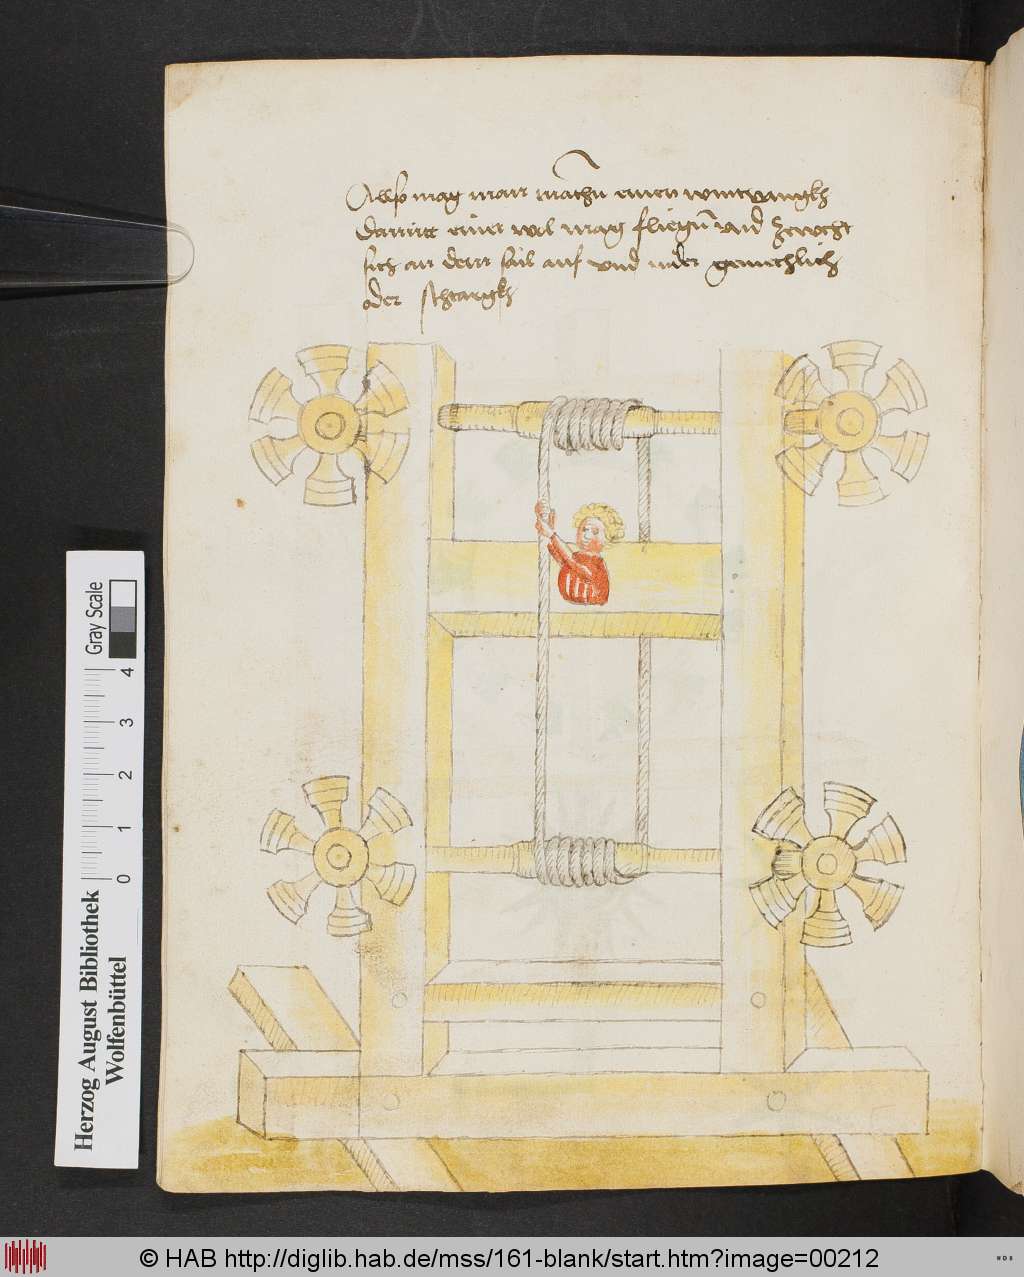 Allso mag man machn einen wintvangkh
damitt einer wol mag fliegn vnd zewcht
sich an dem sail auf vnd nider gemechlich
oder
Gray Scale
4
3
2
1
0
Herzog August Bibliothek
Wolfenbüttel
© HAB http://diglib.hab.de/mss/161-blank/start.htm?image=00212